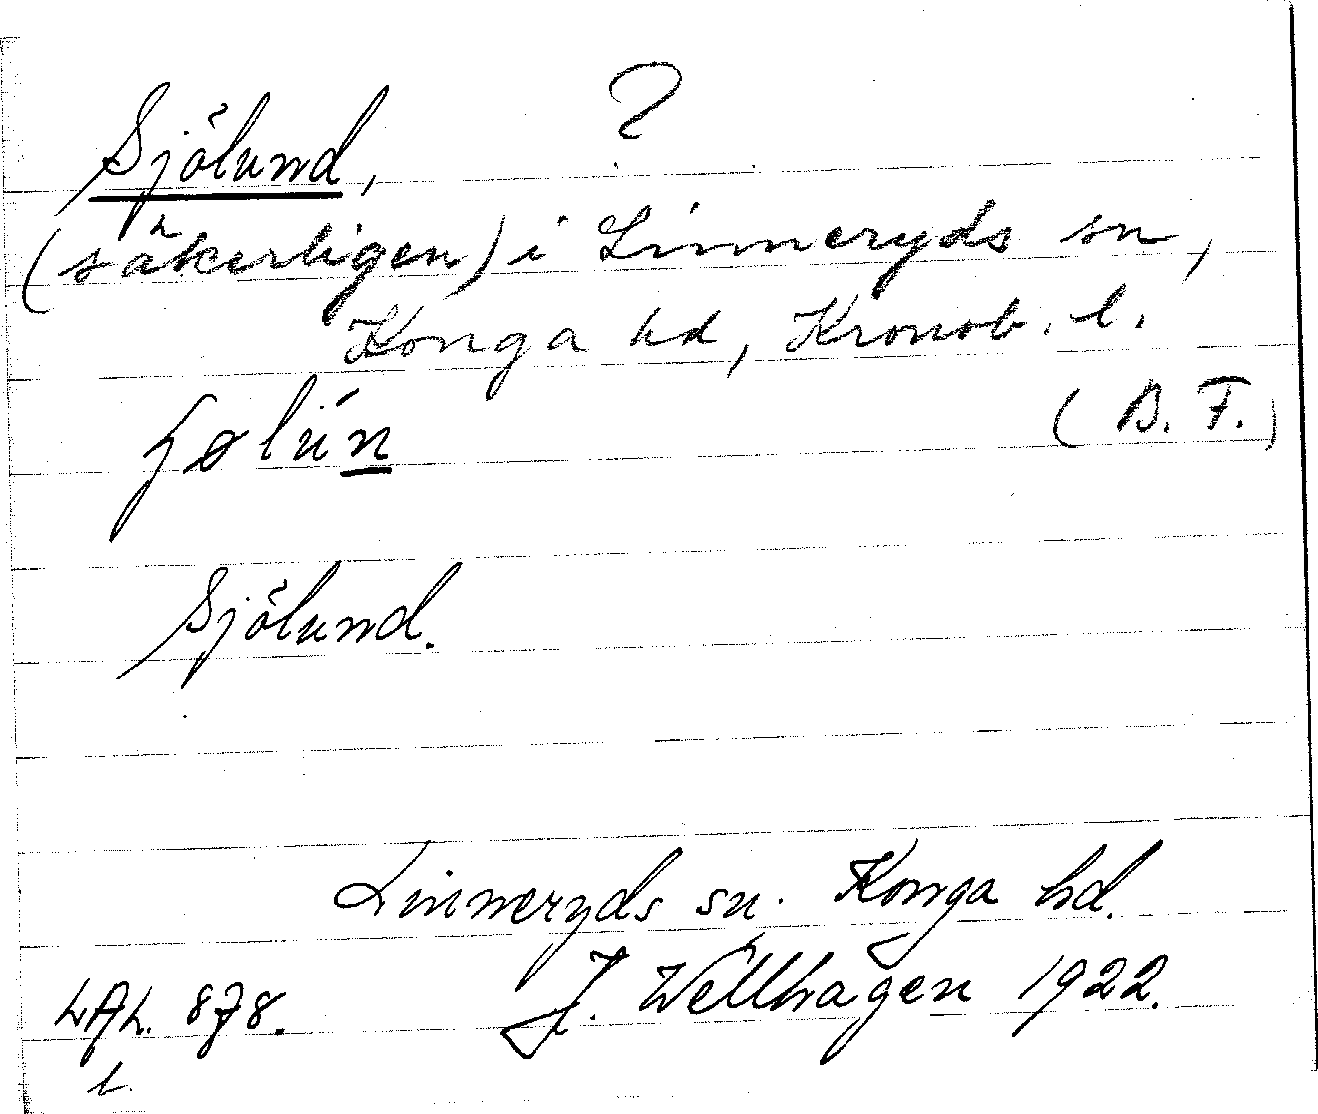 ?
Sjölund,
(säkerligen) i Linneryds sn,
Konga hd, Kronob. l.
(B. F.)
Sjölund.
Linneryds sn. Konga hd.
LAL. 878. J. Wellhagen 1922.
b.